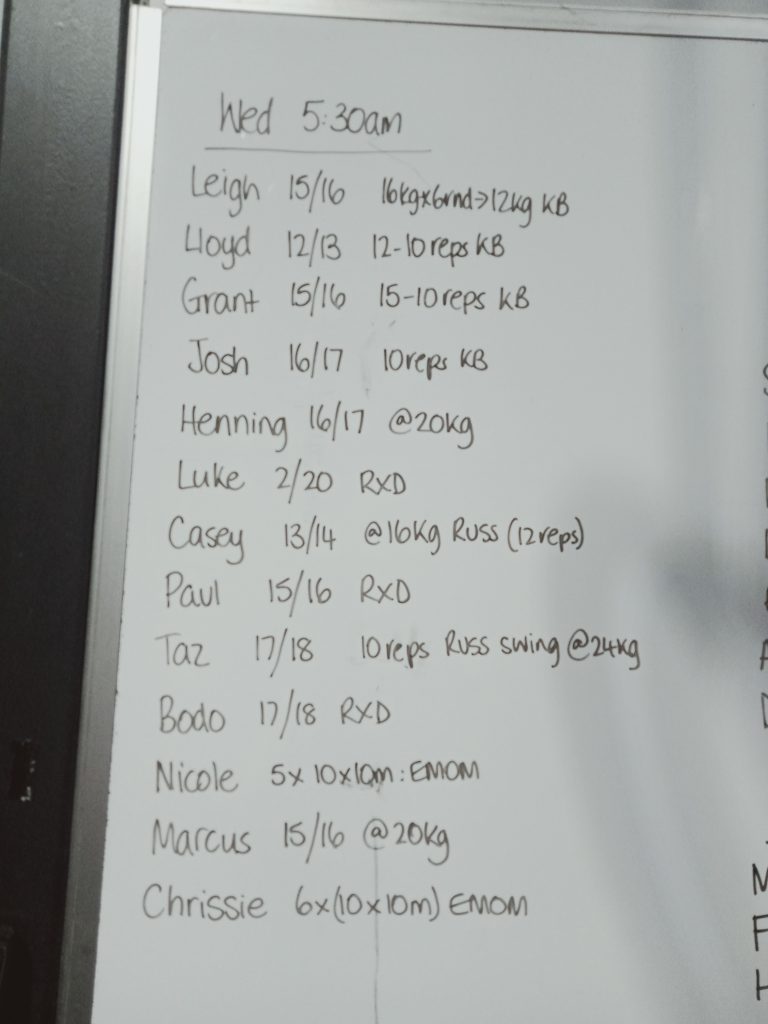 Wed 5:30am
Leigh 15/16 16kgx6rnd→12kg KB
Lloyd 12/13 12-10reps KB
Grant 15/16 15-10reps KB
Josh 16/17 10reps KB
Henning 16/17 @20kg
Luke 2/20 RXD
Casey 13/14 @16Kg Russ (12reps)
Paul 15/16 RXD
Taz 17/18 10reps Russ swing @24kg
Bodo 17/18 RXD
Nicole 5x 10x10m: EMOM
Marcus 15/16 @20kg
Chrissie 6x(10x10m) EMOM